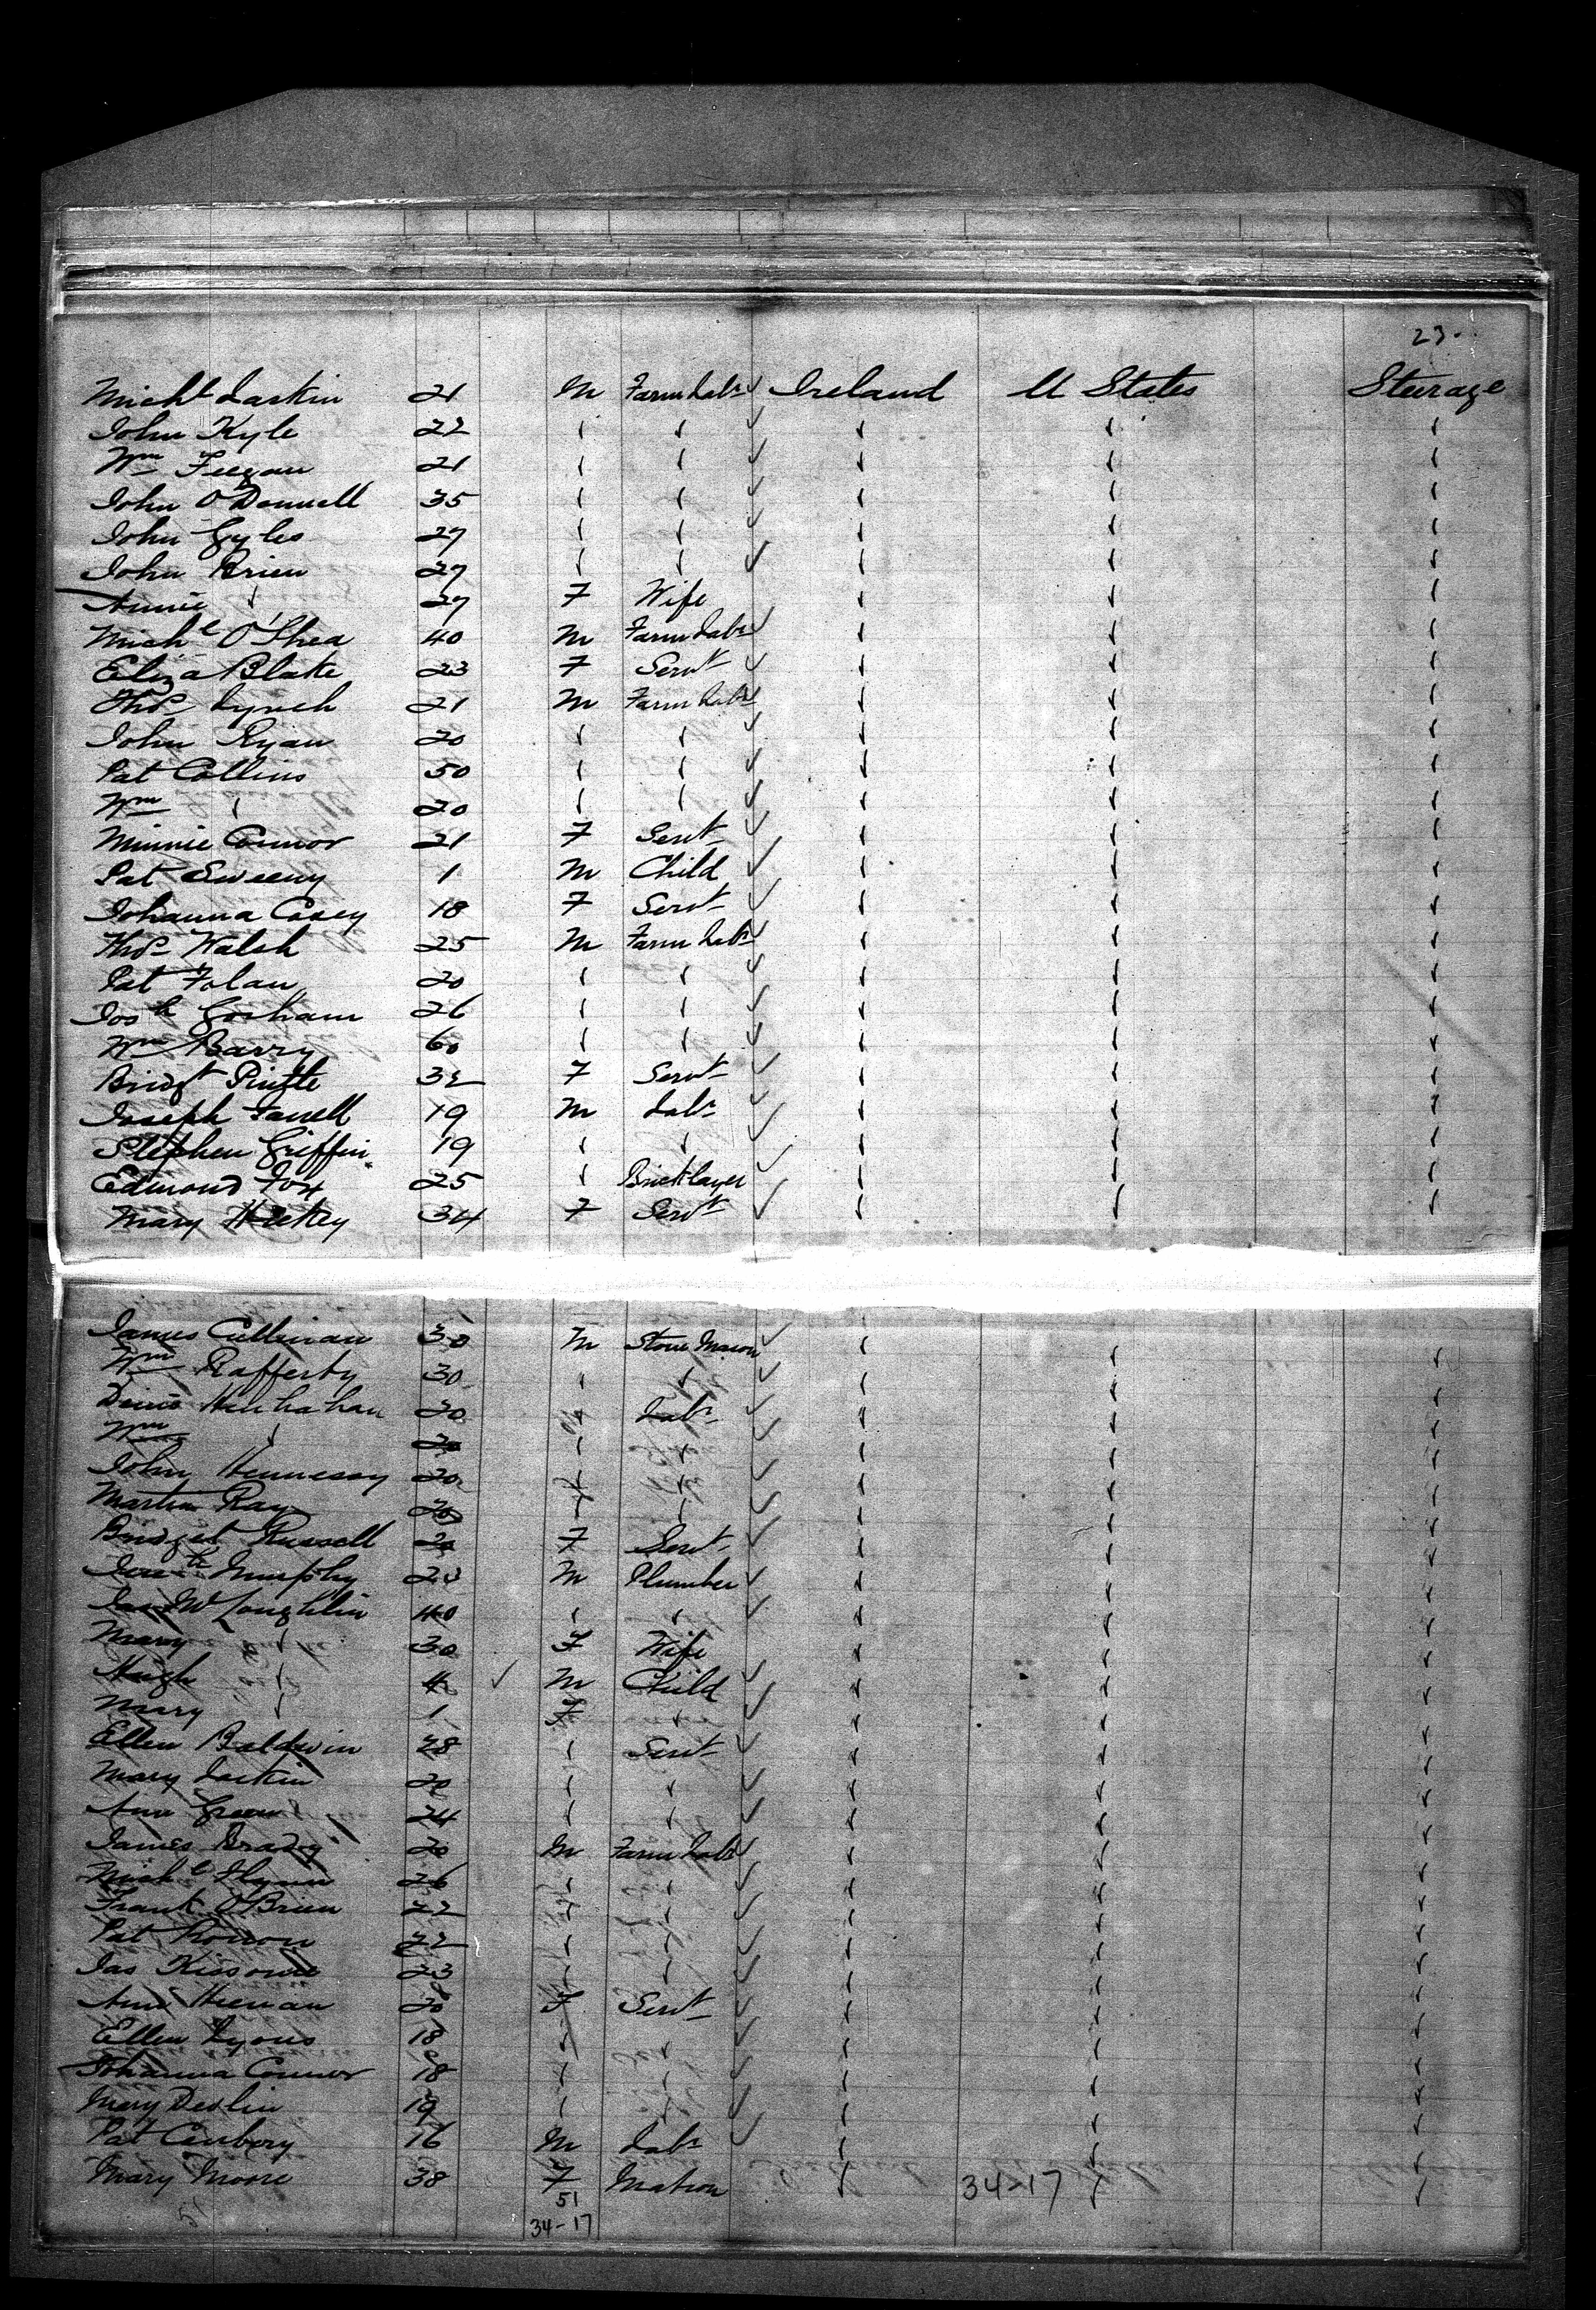 23.
Michl Larkin 21 M Farm Labr Ireland U States Steerage
John Kyle 22
Wm Feegan 21
John O'Donnell 35
John Gyles 27
John Brien 27
Annie 27 F Wife
Michl O'Shea 40 M Farm Labr
Eliza Blake 23 F Servt
Thos Lynch 21 M Farm Labr
John Ryan 20
Pat Collins 50
Wm 20
Minnie Connor 21 F Servt
Pat Sweeny 1 M Child
Johanna Casey 18 F Servt
Thos Walsh 25 M Farm Labr
Pat Folan 20
Josh Gorham 26
Wm Barry 60
Bridgt 32 F Servt
Joseph Farrell 19 M Labr
Stephen Griffin 19
Edmond Fox 25 Bricklayer
Mary Hickey 34 F Servt
James Cullinan 30 M Stone Mason
Wm Rafferty 30
Denis 20 Labr
Wm 20
John Hennessy 20
Martin Ray 20
Bridget Russell 20 F Servt
Murphy 23 M Plumber
Jas McLoughlin 40
Mary 30 F Wife
Hugh 4 M Child
Mary 1 F
Ellen Baldwin 28 Servt
Mary Larkin 20
Ann Green 24
James Brady 20 M Farm Labr
Michl Flynn 26
Frank O'Brien 22
Pat 22
Jas 23
Ann Heenan 20 F Servt
Ellen Lyons 18
Johanna Connor 18
Mary Devlin 19
Pat 16 M Labr
Mary Moore 38 F Matron 34-17
51
34-17